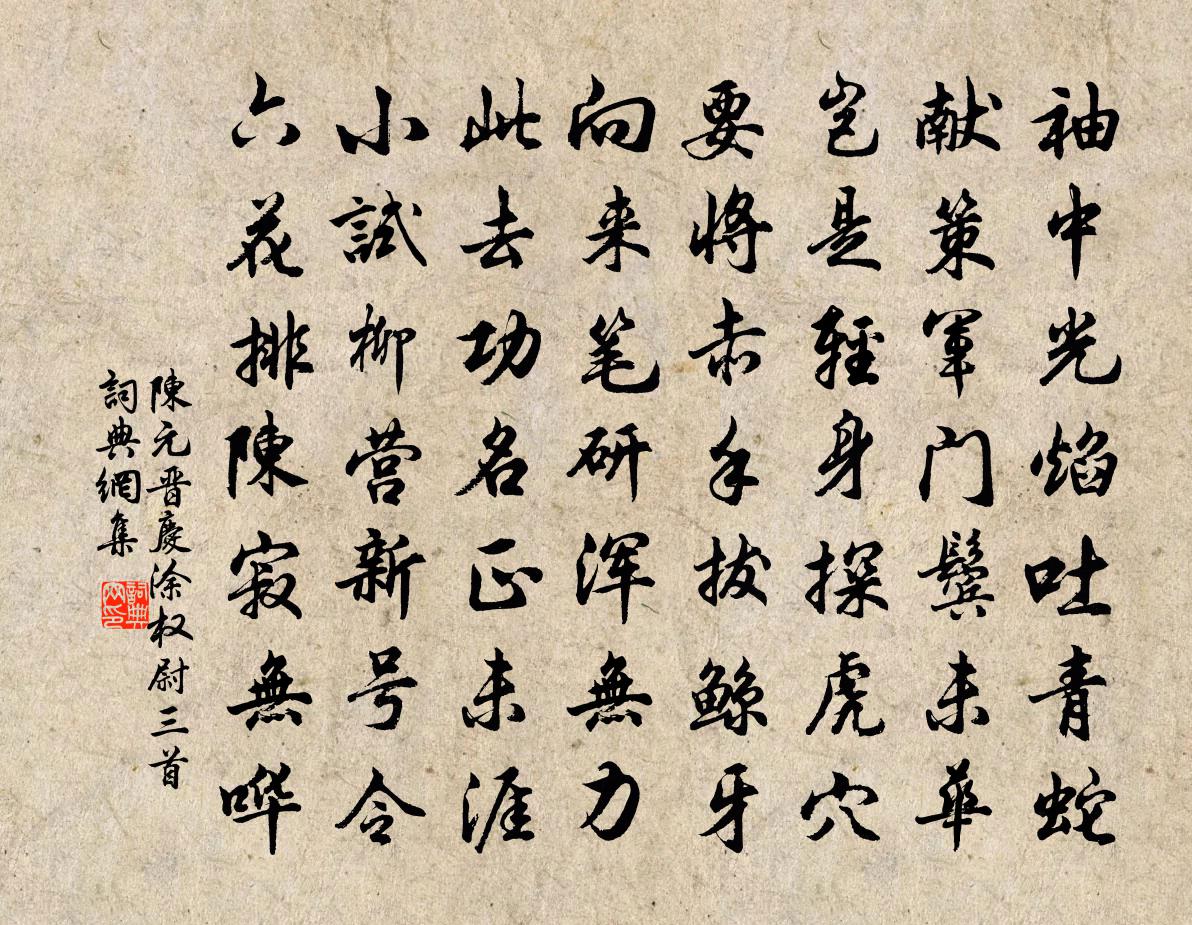 袖中光焰吐青蛇
献策軍门鬓未華
岂是輕身探虎穴
要将赤手拔鲸牙
向来笔研浑無力
此去功名正未涯
小試柳营新号令
六花排陳寂無哗
陳元晋慶涂权尉三首
詞典網集
詞典网印